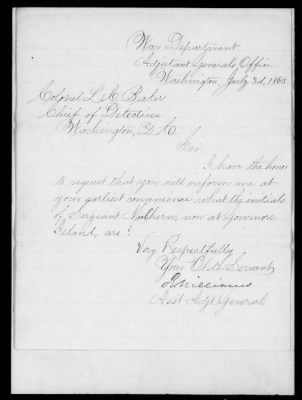 War Department
Adjutant Generals Office
Washington, July 3d, 1865
Colonel L. C. Baker
Chief of Detectives
Washington, D.C.
Sir
I have the honor
to request that you will inform me at
your earliest convenience what the initials
of Sergeant now at Govornors
Island, are?
Very Respectfully
Your Obdt Servant
Asst Adjt General